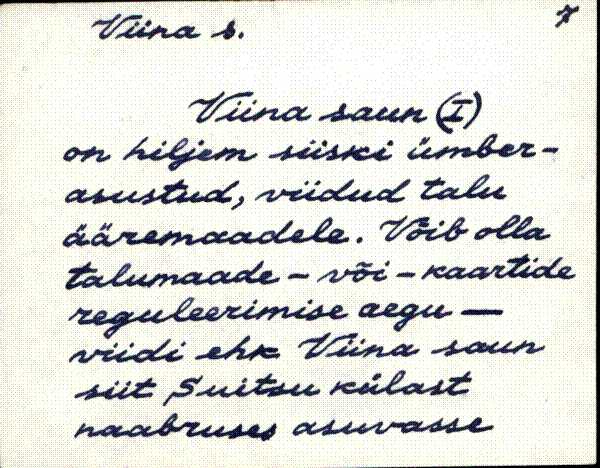 Viina s.
7
Viina saun (I)
on hiljem siiski ümber-
asustud, viidud talu
ääremaadele. Võib olla
talumaade - või - kaartide
reguleerimise aegu —
viidi ehk Viina saun
siit Suitsu külast
naabruses asuvasse